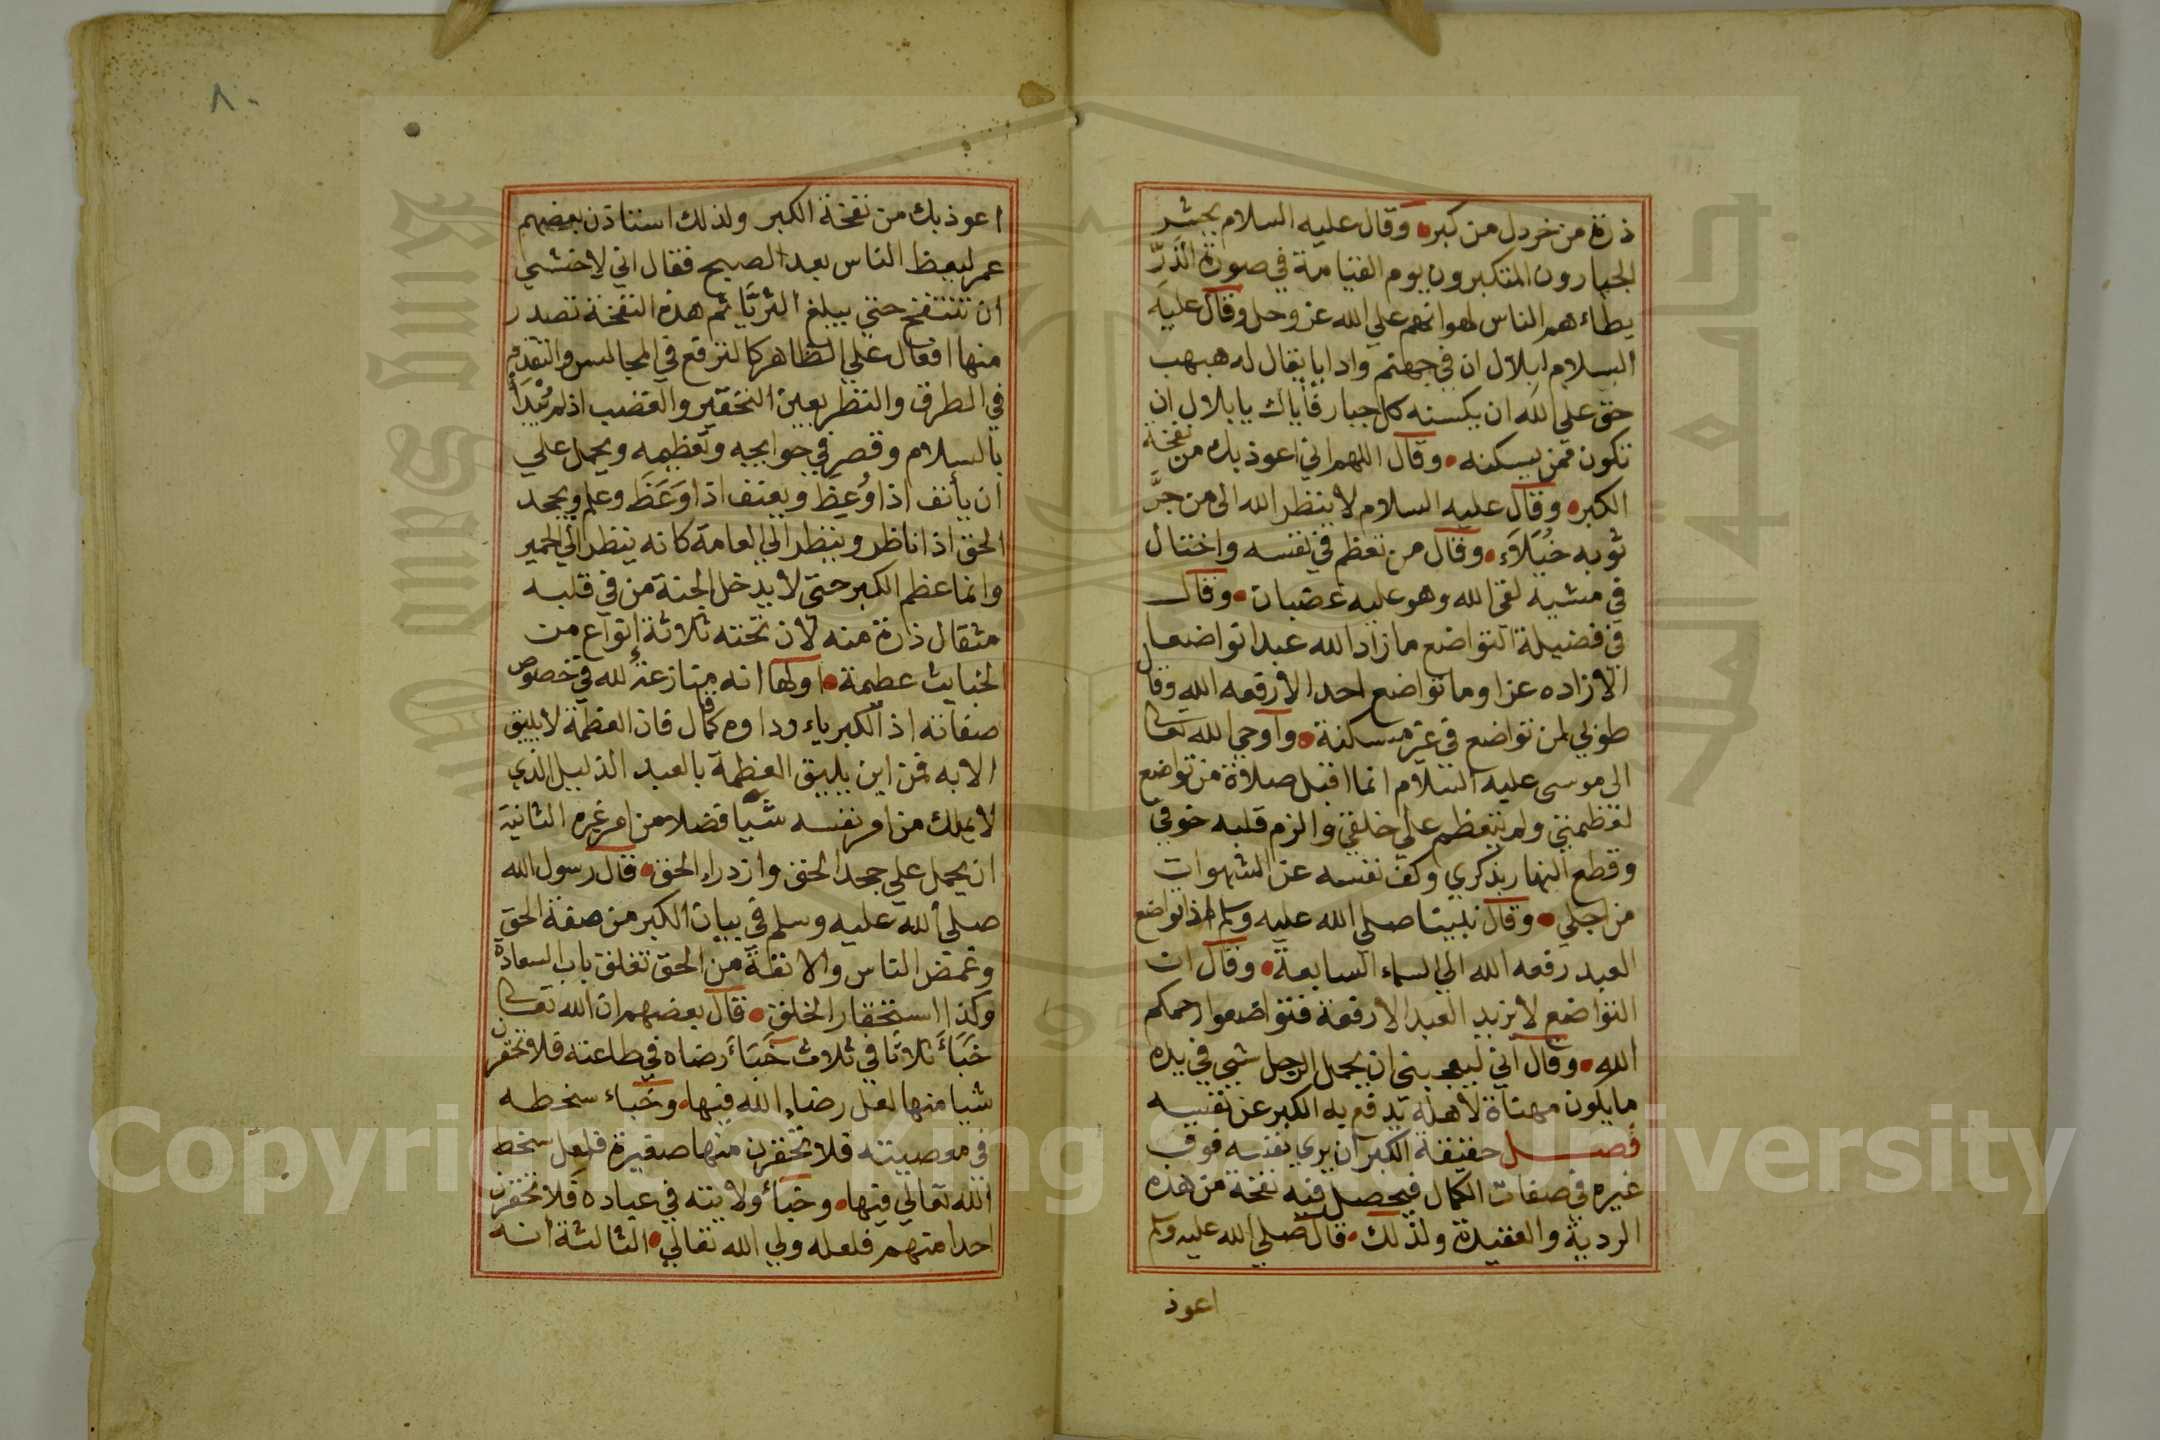 ذرة من خردل من كبر وقال عليه السلام يحشر
الجبارون المتكبرون يوم القيامة في صورة الذر
يطاءهم الناس لهوانهم علي الله عز وجل وقال عليه
السلام لبلال ان في جهنم واديا يقال له هبهب
حق علي الله ان يسكنه كل جبار فأياك يا بلال ان
تكون ممن يسكنه وقال اللهم اني اعوذ بك من نفخة
الكبر وقال عليه السلام لا ينظر الله الى من جر
ثوبه خيلاء وقال من تعظم في نفسه واختال
في مشيه لقي الله وهو عليه غضبان وقال
في فضيلة التواضع ما زاد الله عبدا تواضعا
الا زاده عزا وما تواضع احد الا رفعه الله وقال
طوبي لمن تواضع في غير مسكنة واوحي الله تعالى
الى موسى عليه السلام انما اقبل صلاة من تواضع
لعظمتي ولم يتعظم علي خلقي والزم قلبه خوفي
وقطع النهار بذكري وكف نفسه عن الشهوات
من اجلي وقال نبينا صلي الله عليه وسلم اذا تواضع
العبد رفعه الله الي السماء السابعة وقال ان
التواضع لا يزيد العبد الا رفعة فتواضعوا رحمكم
الله وقال اني ليعجبني ان يحمل الرجل شيي في يده
ما يكون مهناة لأهله يدفع به الكبر عن نفسه
فصل حقيقة الكبر ان يري نفسه فوق
غيره في صفات الكمال فيحصل فيه نفخة من هذه
الردية والعقيدة ولذلك قال صلي الله عليه وسلم
اعوذ
٨٠
اعوذ بك من نفخة الكبر ولذلك استاذن بعضهم
عمر ليعظ الناس بعد الصبح فقال اني لاخشي
ان تنتفخ حتي يبلغ الثريا ثم هذه النفخة تصدر
منها افعال علي الظاهر كالترفع في المجالس والتقدم
في الطرق والنظر بعين التحقير والغضب اذ لم يبدأ
بالسلام وقصر في حوايجه وتعظيمه ويحمل علي
ان يأنف اذا وعظ ويعنف اذا وعظ وعلم ويجحد
الحق اذا ناظر وينظر الي العامة كانه ينظر الي الحمير
وانما عظم الكبر حتى لا يدخل الجنة من في قلبه
مثقال ذارة منه لان تحته ثلاثة انواع من
الخبايث عظيمة اولها انه منازعة لله في خصوص
صفاته اذ الكبرياء رداوه كما قال فان العظمة لا يليق
الا به فمن اين يليق العظمة بالعبد الذليل الذي
لا يملك من امر نفسه شيا فضلا من امر غيره الثانية
ان يحمل علي جحد الحق وازدراء الحق قال رسول الله
صلي الله عليه وسلم في بيان الكبر من صفة الحق
وغمض الناس والانفة من الحق تغلق باب السعادة
وكذا استحقار الخلق قال بعضهم ان الله تعالى
خبأ ثلاثا في ثلاث خبأ رضاه في طاعته فلا تحقرن
شيا منها لعل رضاء الله فيها وخباء سخطه
في معصيته فلا تحقرن منها صغيرة فلعل سخط
الله تعالي فيها وخبأ ولايته في عباده فلا تحقرن
احدا منهم فلعله ولي الله تعالي الثالثة انه
Copyright © King Saud University